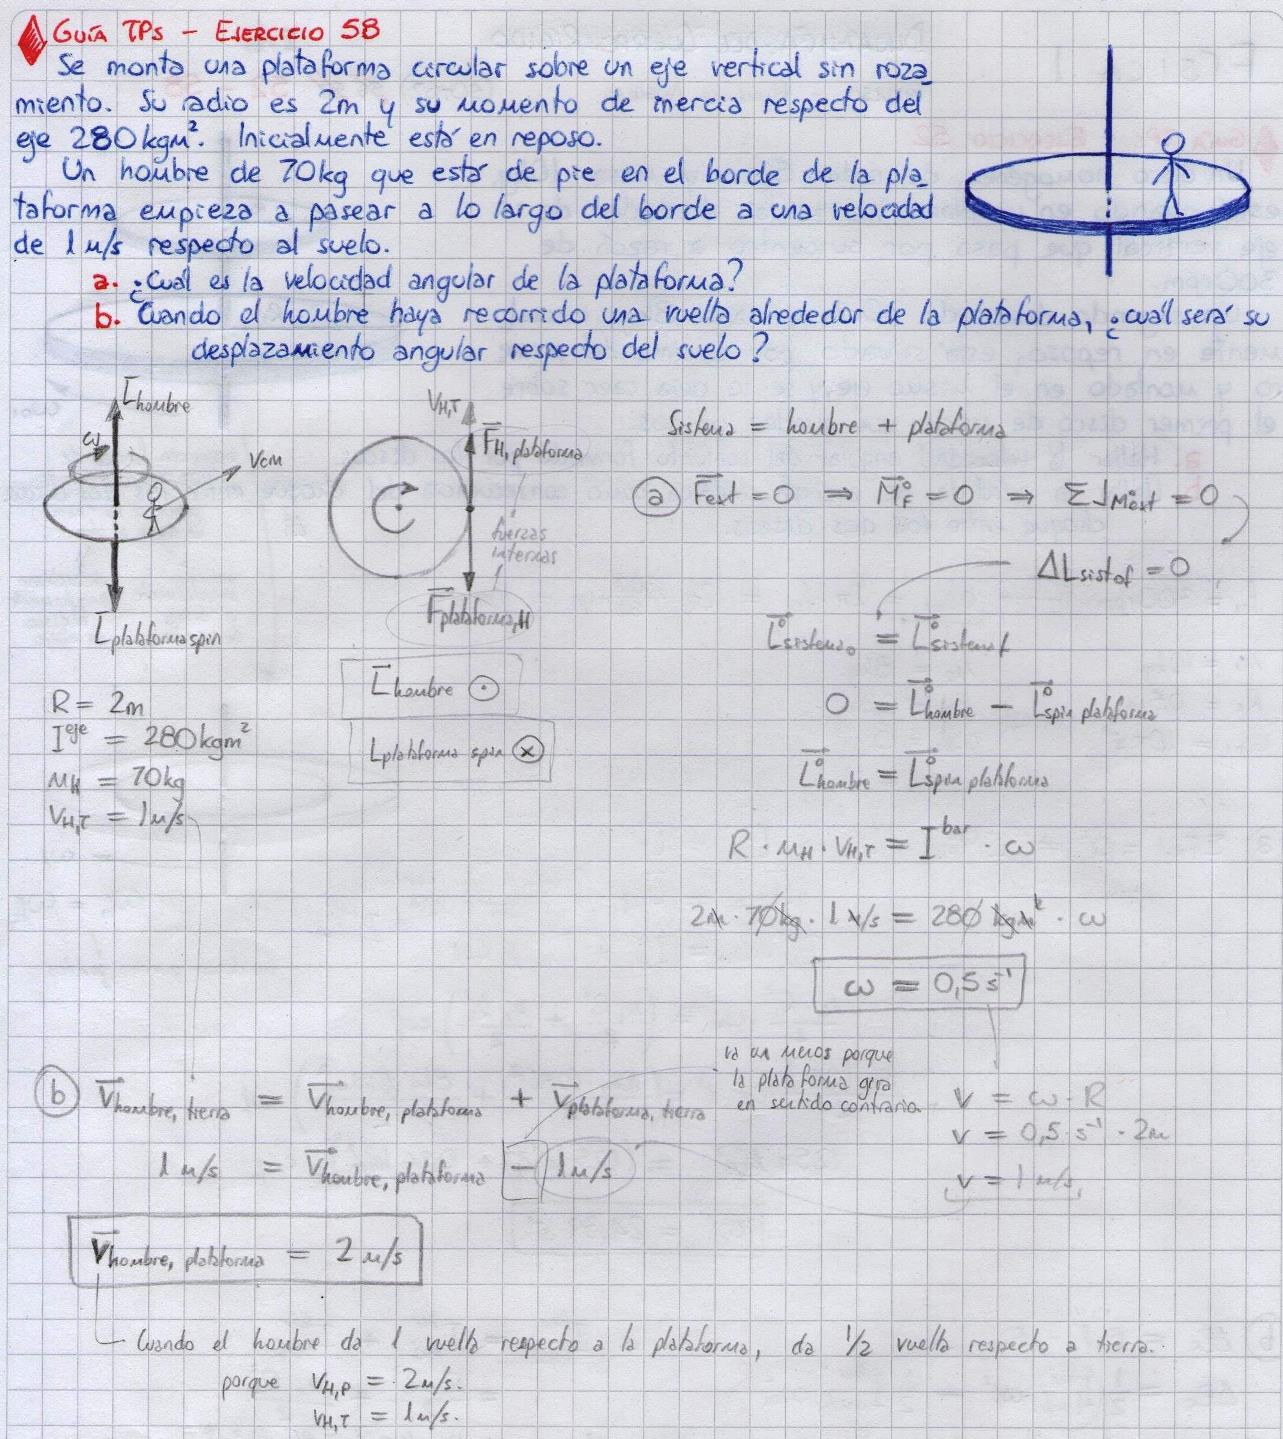 GUÍA TPs - EJERCICIO 58
Se monta una plataforma circular sobre un eje vertical sin roza_
miento. Su radio es 2m y su momento de inercia respecto del
eje 280kgm². Inicialmente está en reposo.
Un hombre de 70kg que está de pie en el borde de la pla_
taforma empieza a pasear a lo largo del borde a una velocidad
de 1 m/s respecto al suelo.
a. ¿Cuál es la velocidad angular de la plataforma?
b. Cuando el hombre haya recorrido una vuelta alrededor de la plataforma, ¿cuál será su
desplazamiento angular respecto del suelo?
L hombre
ω
Vcm
L plataforma spin
V H,T
F H, plataforma
fuerzas
internas
F plataforma, H
L hombre ⊙
L plataforma spin ⊗
R = 2m
I eje = 280kgm²
mH = 70kg
V H,T = 1m/s
Sistema = hombre + plataforma
a Fext = 0 ⇒ M°F = 0 ⇒ ΣJ M°ext = 0
ΔLsistof = 0
L° sistema₀ = L° sistema f
0 = L° hombre - L° spin plataforma
L° hombre = L° spin plataforma
R · mH · V H,T = I bar · ω
2m · 70kg · 1 m/s = 280 kgm² · ω
ω = 0,5 s⁻¹
va un menos porque
la plataforma gira
en sentido contrario
b V hombre, tierra = V hombre, plataforma + V plataforma, tierra
1 m/s = V hombre, plataforma - 1m/s
v = ω · R
v = 0,5 · s⁻¹ · 2m
v = 1 m/s
V hombre, plataforma = 2 m/s
Cuando el hombre da 1 vuelta respecto a la plataforma, da 1/2 vuelta respecto a tierra.
porque V H,P = 2m/s.
V H,T = 1m/s.